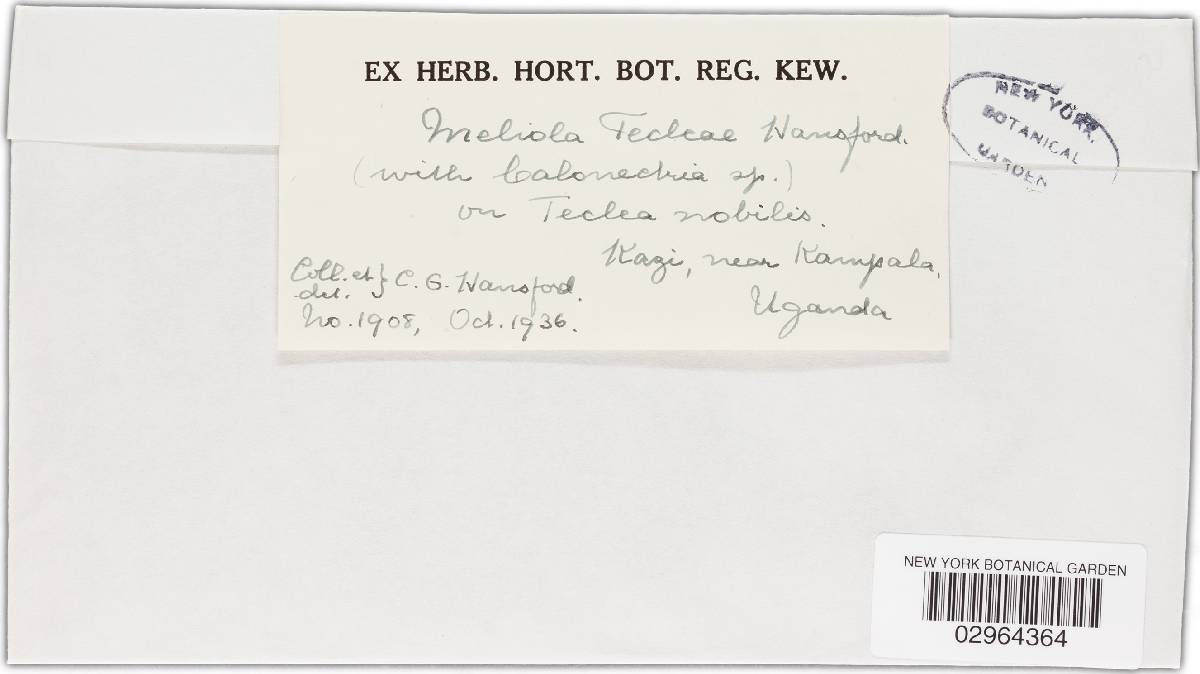 EX HERB. HORT. BOT. REG. KEW.
Meliola Tecleae Hansford.
(with Calonectria sp.)
on Teclea nobilis.
Kazi, near Kampala,
Uganda
Coll. et } C. G. Hansford.
det.
No. 1908, Oct. 1936.
NEW YORK
BOTANICAL
GARDEN
NEW YORK BOTANICAL GARDEN
02964364